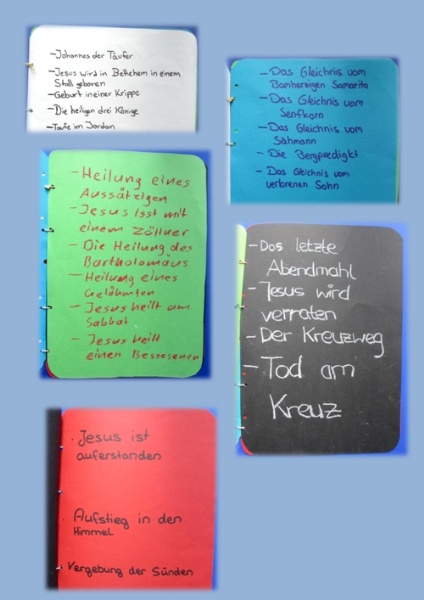 - Johannes der Täufer
- Jesus wird in Bethehem in einem
Stall geboren
- Geburt in einer Krippe
- Die heiligen drei Könige
- Taufe im Jordan
- Das Gleichnis vom
Barmherzigen Samarita
- Das Gleichnis vom
Senfkorn
- Das Gleichnis vom
Sähmann
- Die Bergpredigt
- Das Gleichnis vom
verlorenen Sohn
- Heilung eines
Aussätzigen
- Jesus isst mit
einem Zöllner
- Die Heilung des
Bartholomäus
- Heilung eines
Gelähmten
- Jesus heilt am
Sabbat
- Jesus heilt
einen Besessenen
- Das letzte
Abendmahl
- Jesus wird
verraten
- Der Kreuzweg
- Tod am
Kreuz
· Jesus ist
auferstanden
· Aufstieg in den
Himmel
· Vergebung der Sünden